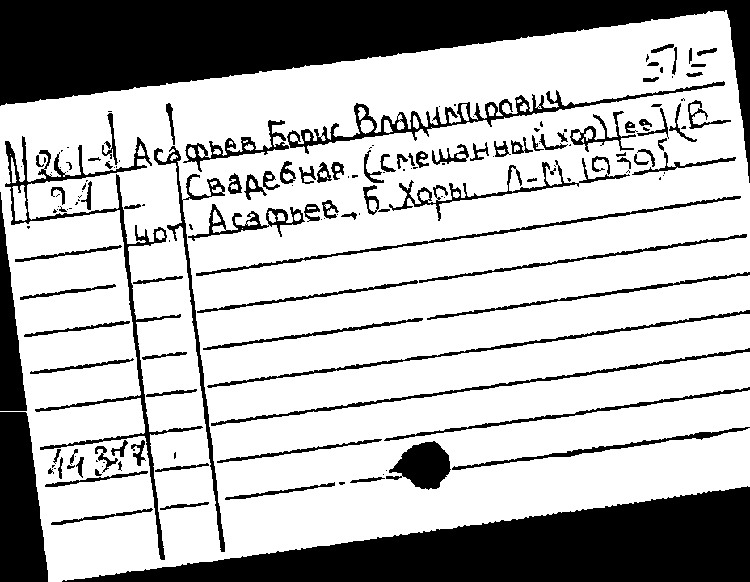 515
261-2 Асафьев, Борис Владимирович.
24 Свадебная. (смешанный хор) [ее] (В
нот: Асафьев, Б. Хоры. Л-М. 1939).
44377